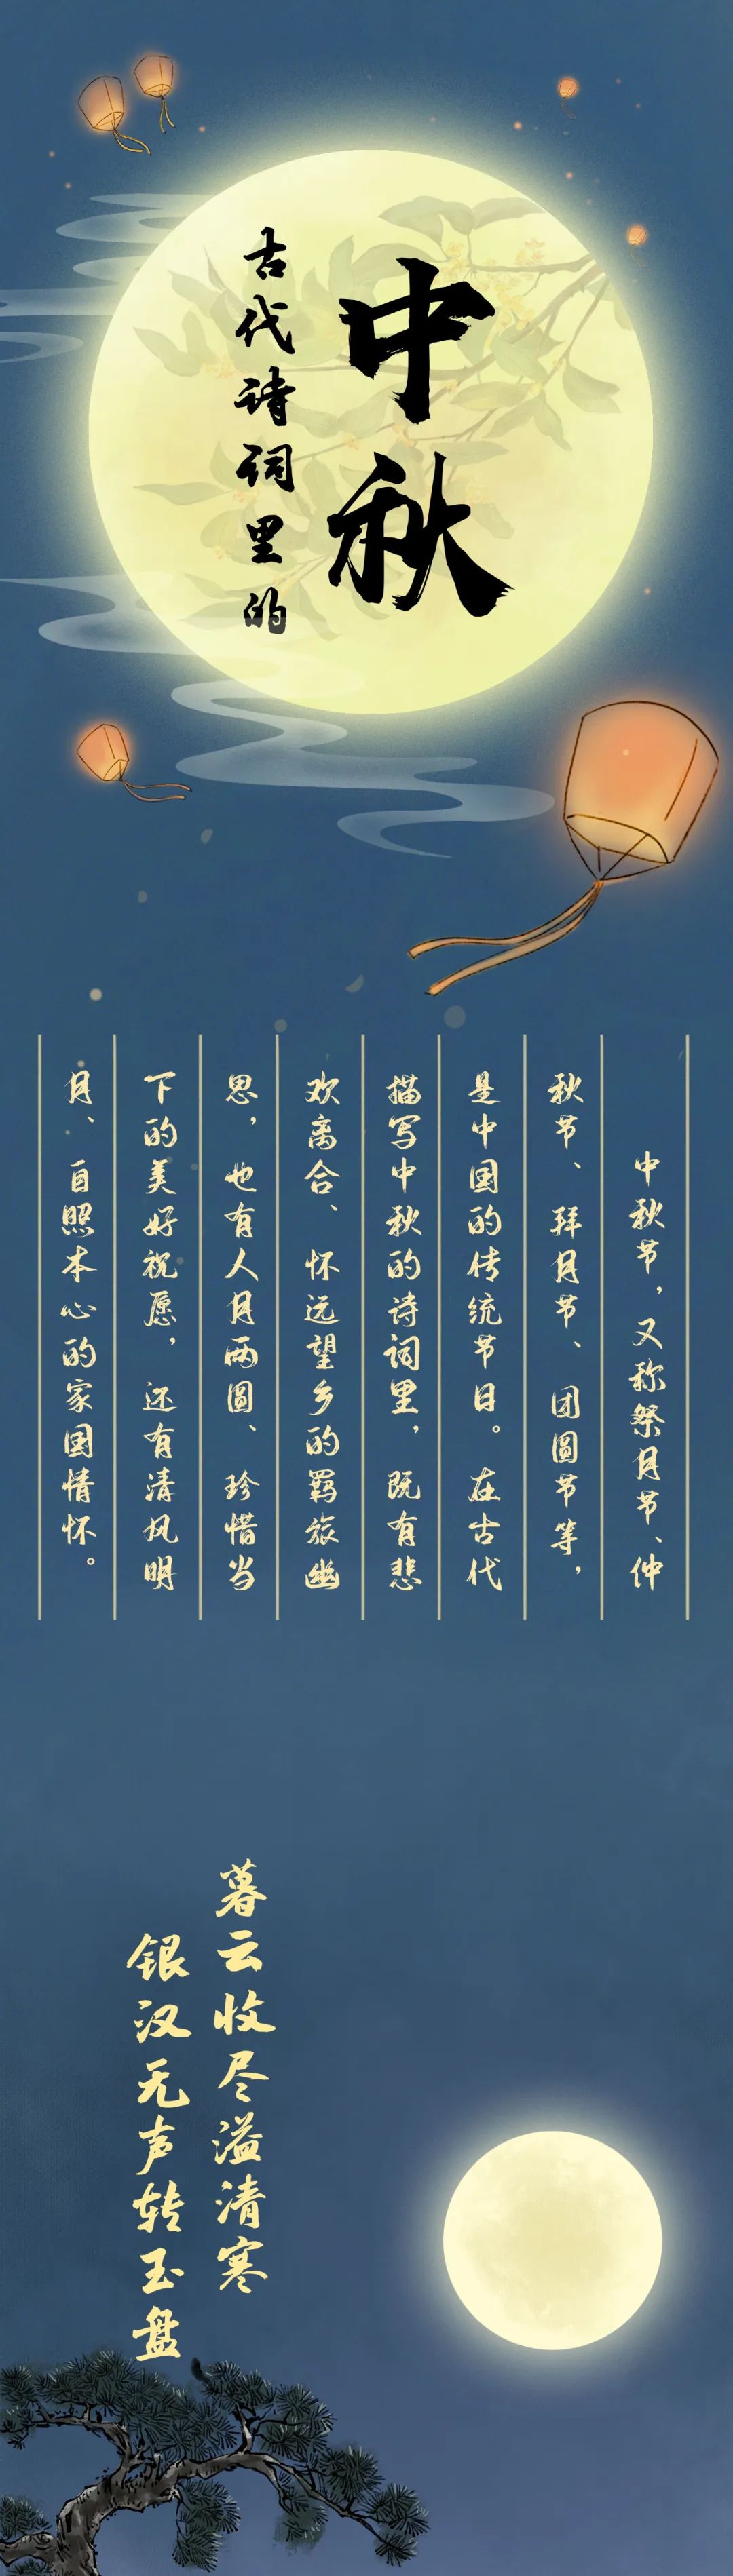 中秋
古代诗词里的
中秋节，又称祭月节、仲
秋节、拜月节、团圆节等，
是中国的传统节日。在古代
描写中秋的诗词里，既有悲
欢离合、怀远望乡的羁旅幽
思，也有人月两圆、珍惜当
下的美好祝愿，还有清风明
月、自照本心的家国情怀。
暮云收尽溢清寒
银汉无声转玉盘